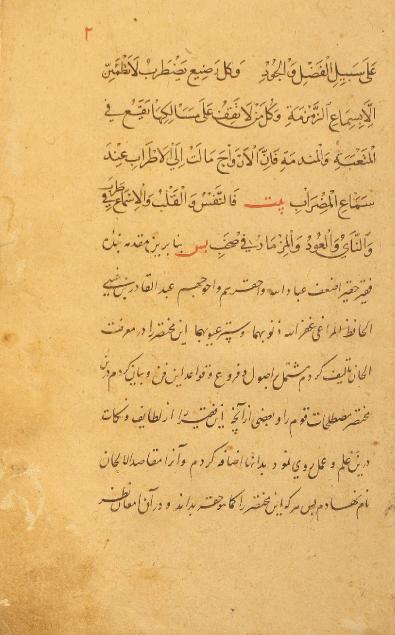 ٢
علی سبیل الفضل والجود وکل رضیع یضطرب لا تطمئن
الا بسماع الزمزمة وکل من لا یقف علی مسالکها یقع فی
المتعبة والمندمة فان الازواج مالت الی الاطراب عند
سماع المضراب بیت فالنفس والقلب والاسماع طرب فی
والنای والعود والمزمار فی صخب پس بنا برین مقدمه بنده
فقیر حقیر اضعف عباد الله واحقرهم واحوجهم عبد القادر بن غیبی
الحافظ المراغی غفر الله ذنوبهما وستر عیوبهما این مختصر را در معرفت
الحان تالیف کردم مشتمل اصول و فروع و قواعد این فن و بیان کردم درین
مختصر مصطلحات قوم را و بعضی از آنچه این فقیر را از لطایف و نکات
درین علم و عمل روی نمود بدانها اضافه کردم و آنرا مقاصد الالحان
نام نهادم پس هر که این مختصر را کما هو حقه بداند و در آن امعان نظر